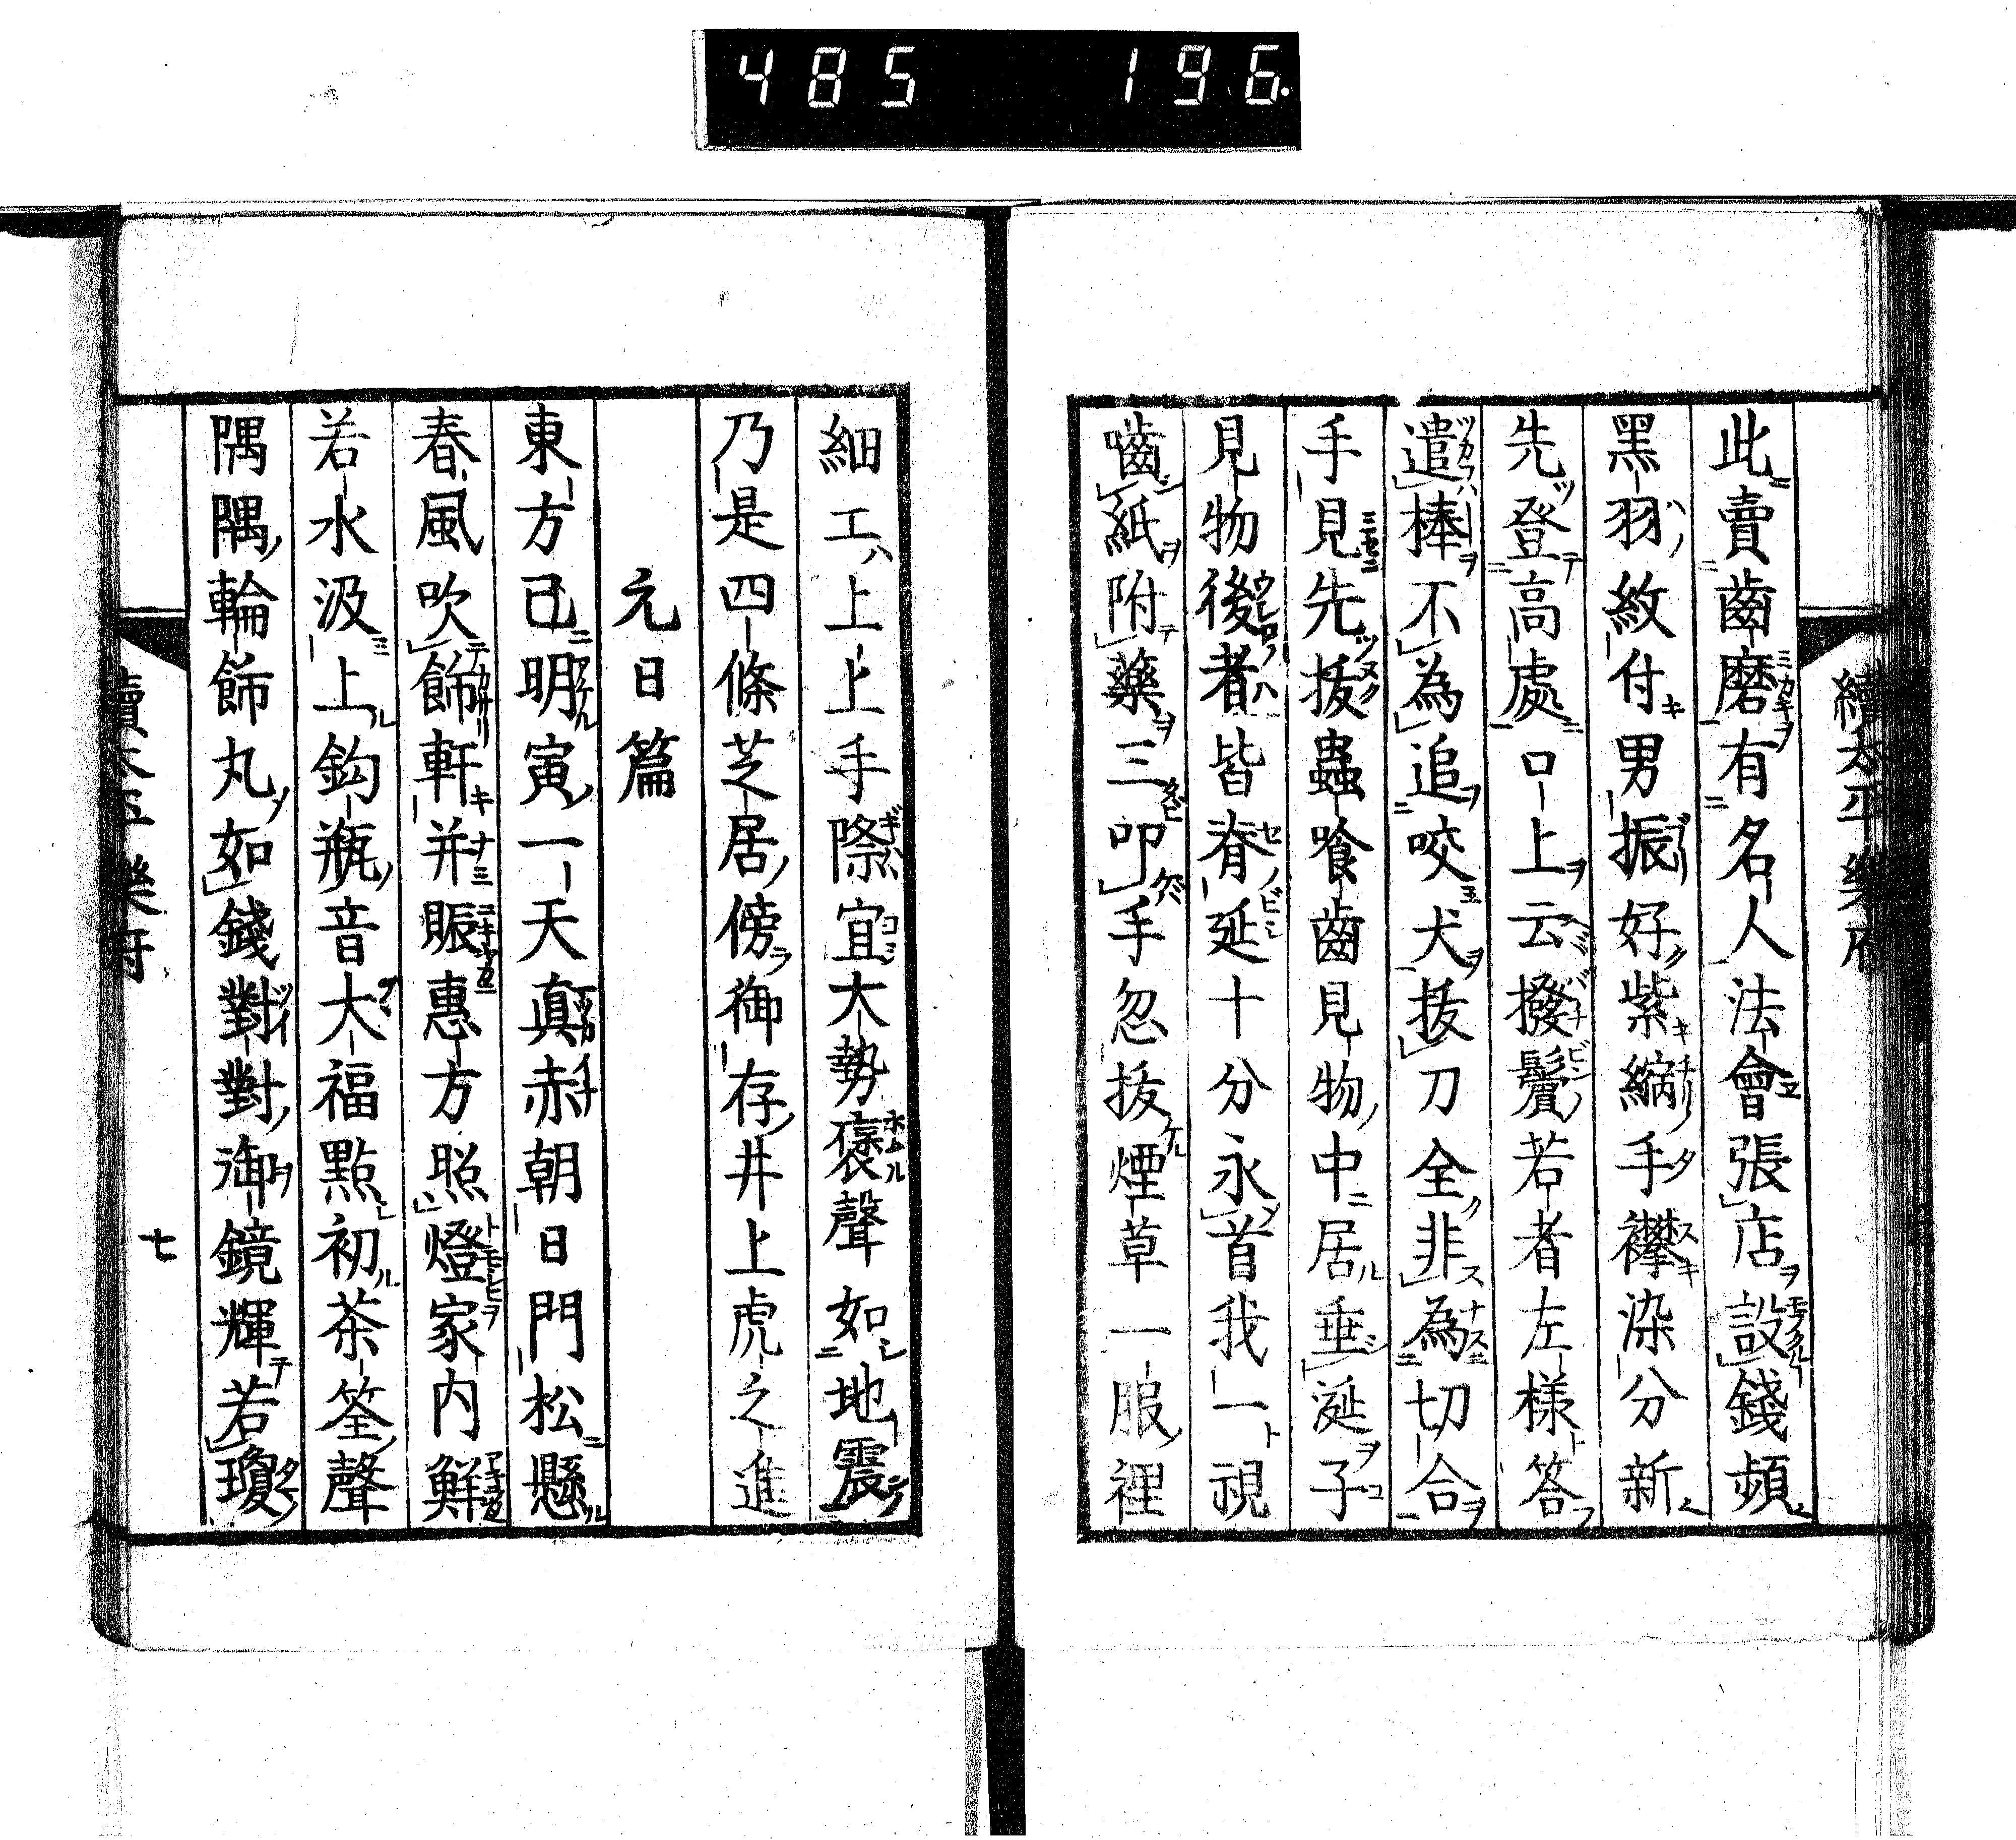 485 196.
續太平樂府
此賣齒磨有名人法會張店設錢頻
黑羽紋付男振好紫縮手襷染分新
先登高處口上云撥鬢若者左樣答
遣棒不為追咬犬拔刀全非為切合
手見先拔蟲喰齒見物中居垂涎子
見物後者皆脊延十分永首我一視
齒紙附藥三叩手忽拔煙草一服裡
細工上上手際宜大勢褒聲如地震
乃是四條芝居傍御存井上虎之進
元日篇
東方已明寅一天真赤朝日門松懸
春風吹飾軒并賑惠方照燈家内鮮
若水汲上鈎瓶音大福點初茶筌聲
隅隅輪飾丸如錢對對御鏡輝若瓊
續太平樂府
七